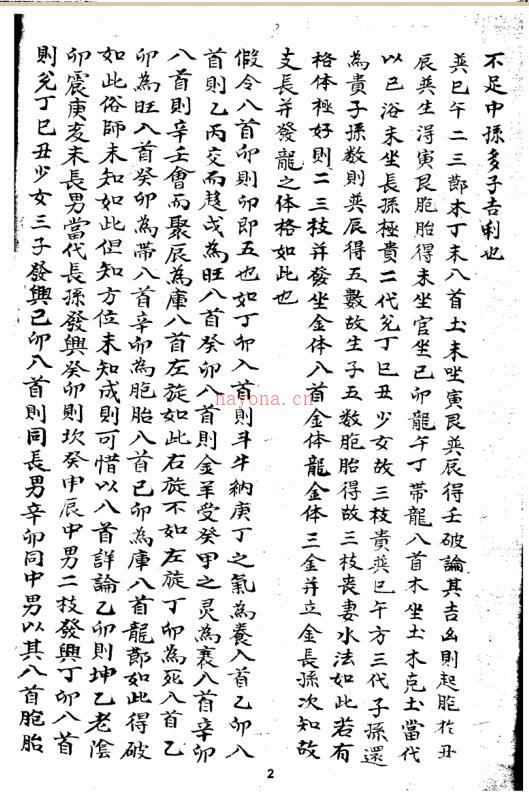 不足中孫多子吉利也
巽巳午二三節木丁未八首土未坐寅艮巽辰得壬破論其吉凶則起胞於丑
辰巽生浔寅艮胞胎得未坐官坐己卯龍午丁帶龍八首木坐土木克土當代
以巳浴未坐長孫極貴二代兌丁巳丑少女故三枝貴巽巳午方三代子孫還
為貴子孫数則巽辰得五數故生子五数胞胎得故三枝喪妻水法如此若有
格体極好則二三枝并發坐金体八首金体龍金体三金并立金長孫次知故
支長并發龍之体格如此也
假令八首卯則卯即五也如丁卯入首則斗牛納庚丁之氣為養入首乙卯八
首則乙丙交而趍戌為旺八首癸卯八首則金羊受癸甲之灵為衰入首辛卯
八首則辛壬會而聚辰為庫八首左旋如此右旋不如左旋丁卯為死八首乙
卯為旺入首癸卯為帶八首辛卯為胞胎八首己卯為庫八首龍節如此得破
如此俗師未知如此但知方位未知成則可惜以八首詳論乙卯則坤乙老陰
卯震庚亥未長男當代長孫發興癸卯則坎癸申辰中男二枝發興丁卯八首
則兌丁巳丑少女三子發興己卯八首則同長男辛卯同中男以其八首胞胎
nayona.cn
2